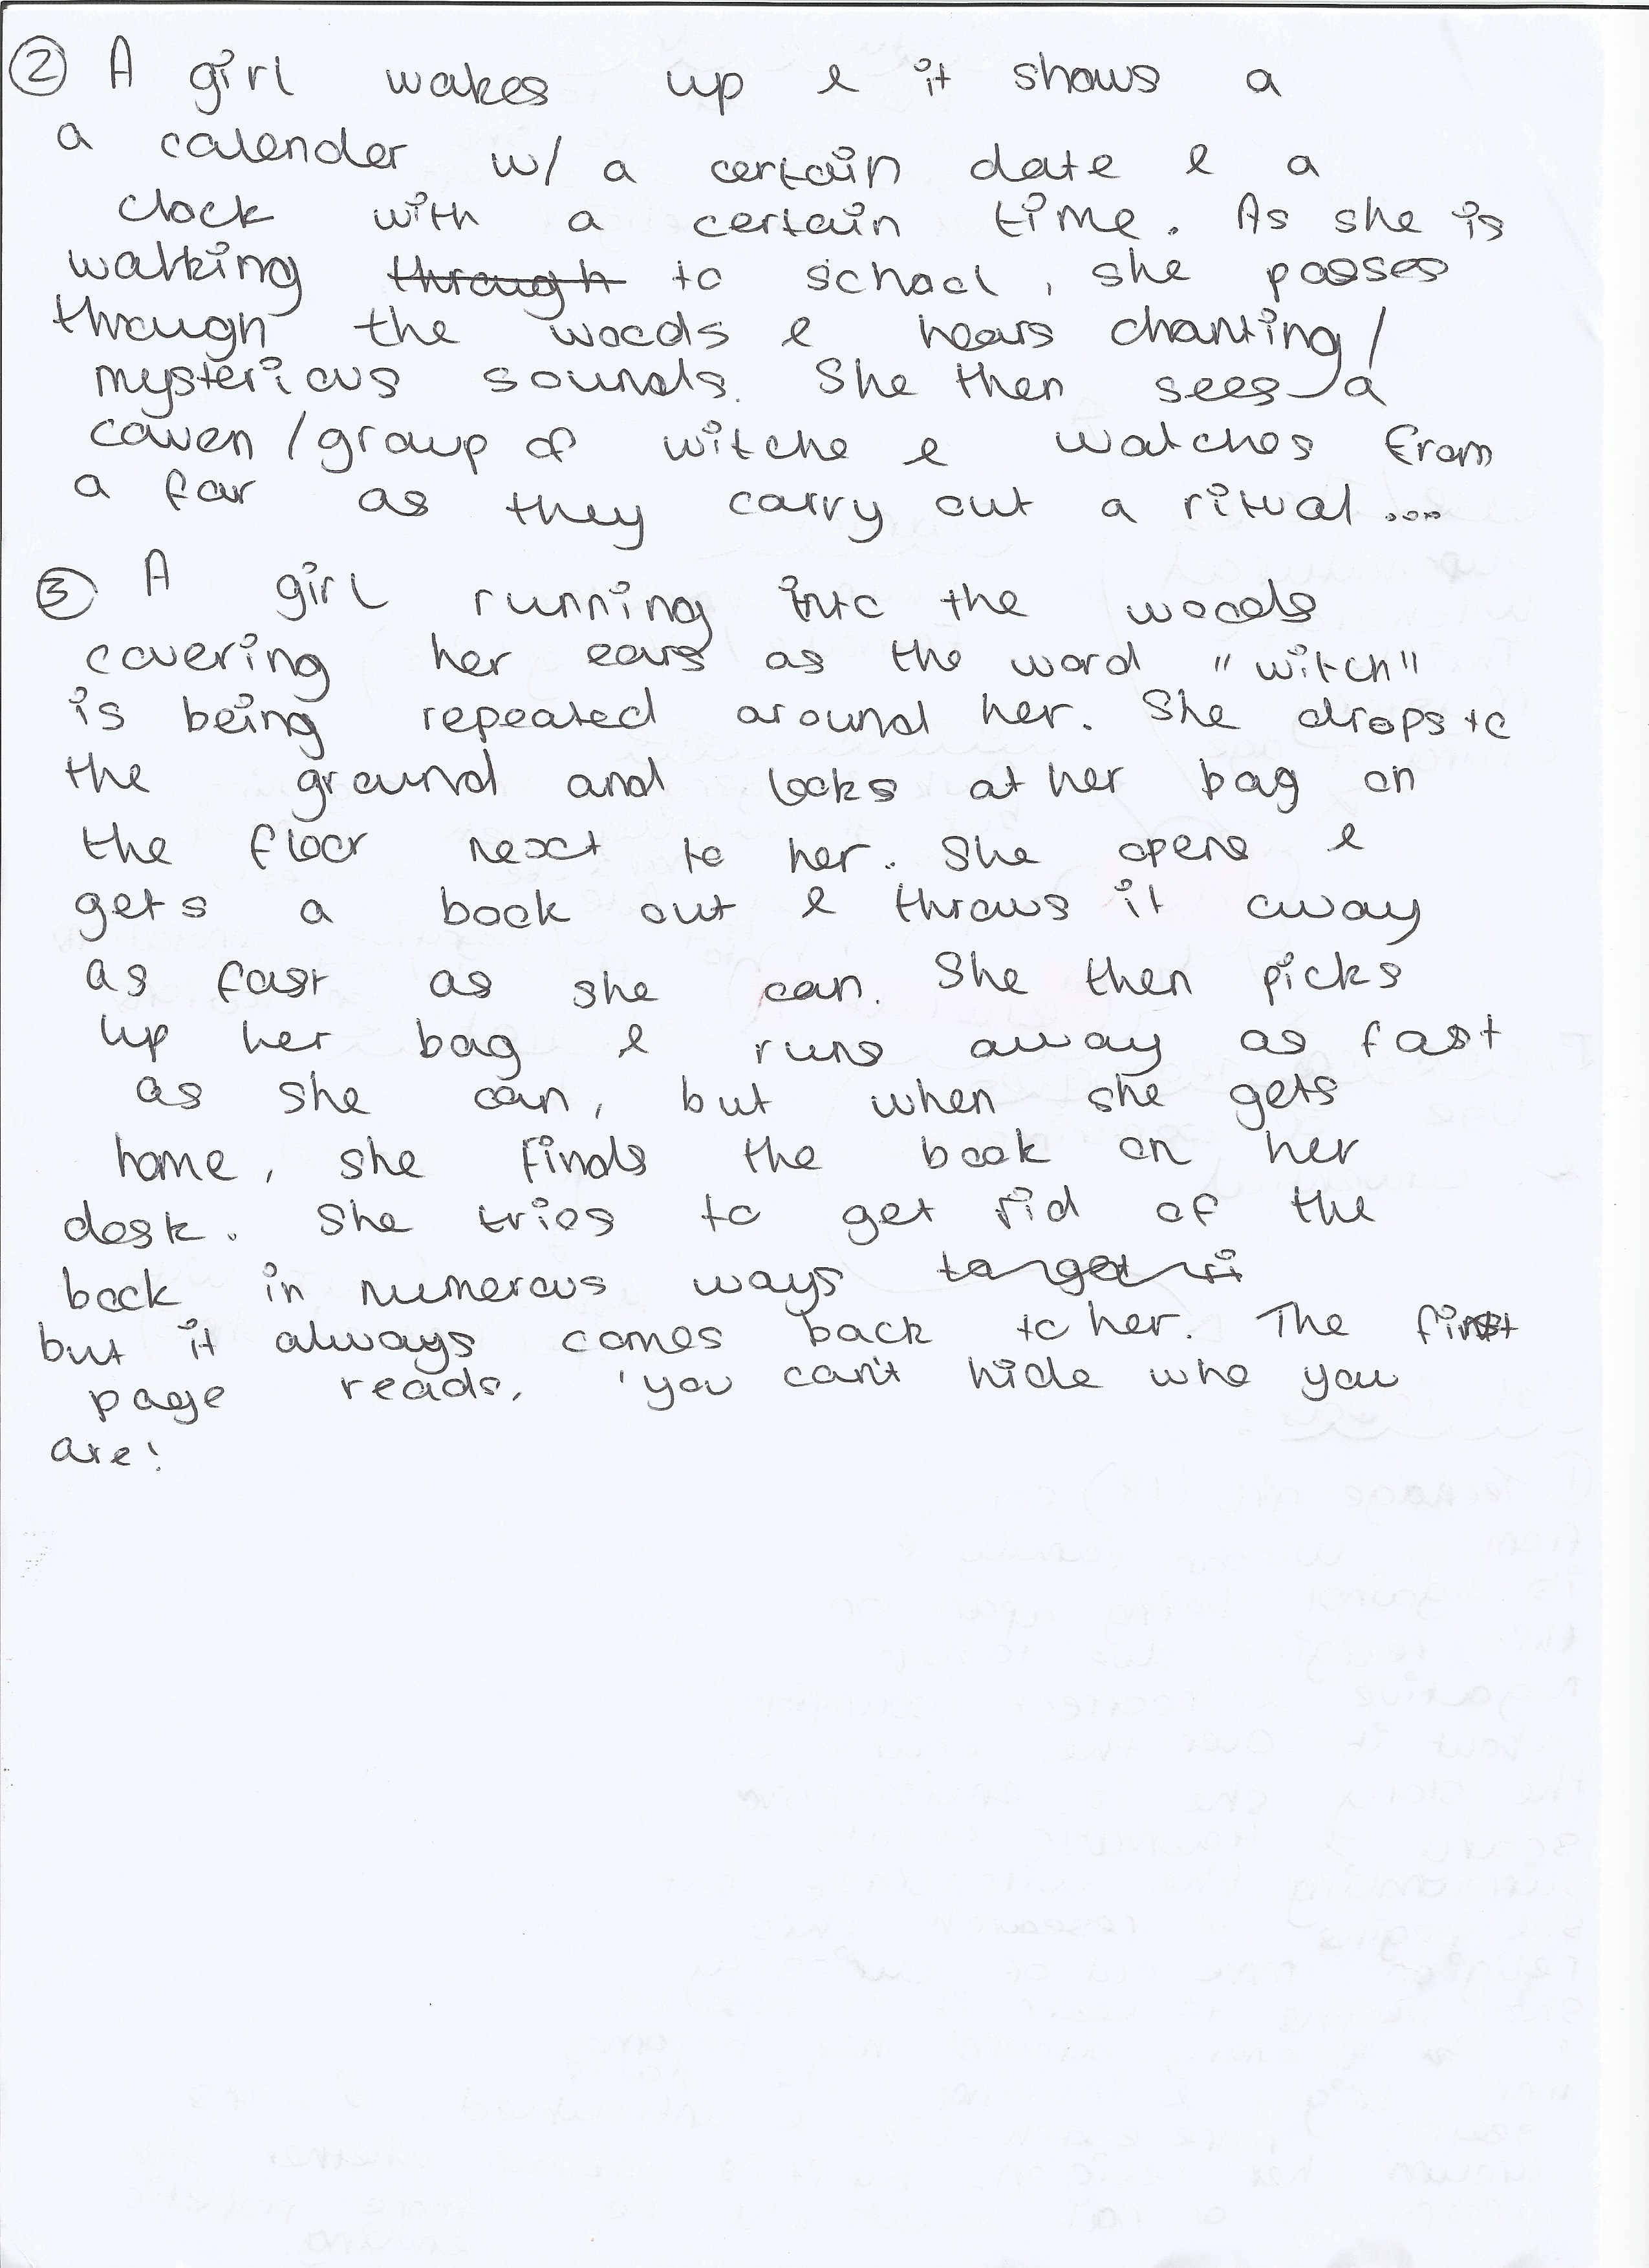 ② A girl wakes up & it shows a
a calender w/ a certain date & a
clock with a certain time. As she is
walking ~~through~~ to school, she passes
through the woods & hears chanting/
mysterious sounds. She then sees a
coven/group of witche & watches from
a far as they carry out a ritual....
③ A girl running into the woods
covering her ears as the word "witch"
is being repeated around her. She drops to
the ground and looks at her bag on
the floor next to her. She opens &
gets a book out & throws it away
as fast as she can. She then picks
up her bag & runs away as fast
as she can, but when she gets
home, she finds the book on her
desk. She tries to get rid of the
book in numerous ways ~~to get ri~~
but it always comes back to her. The first
page reads, 'you can't hide who you
are!